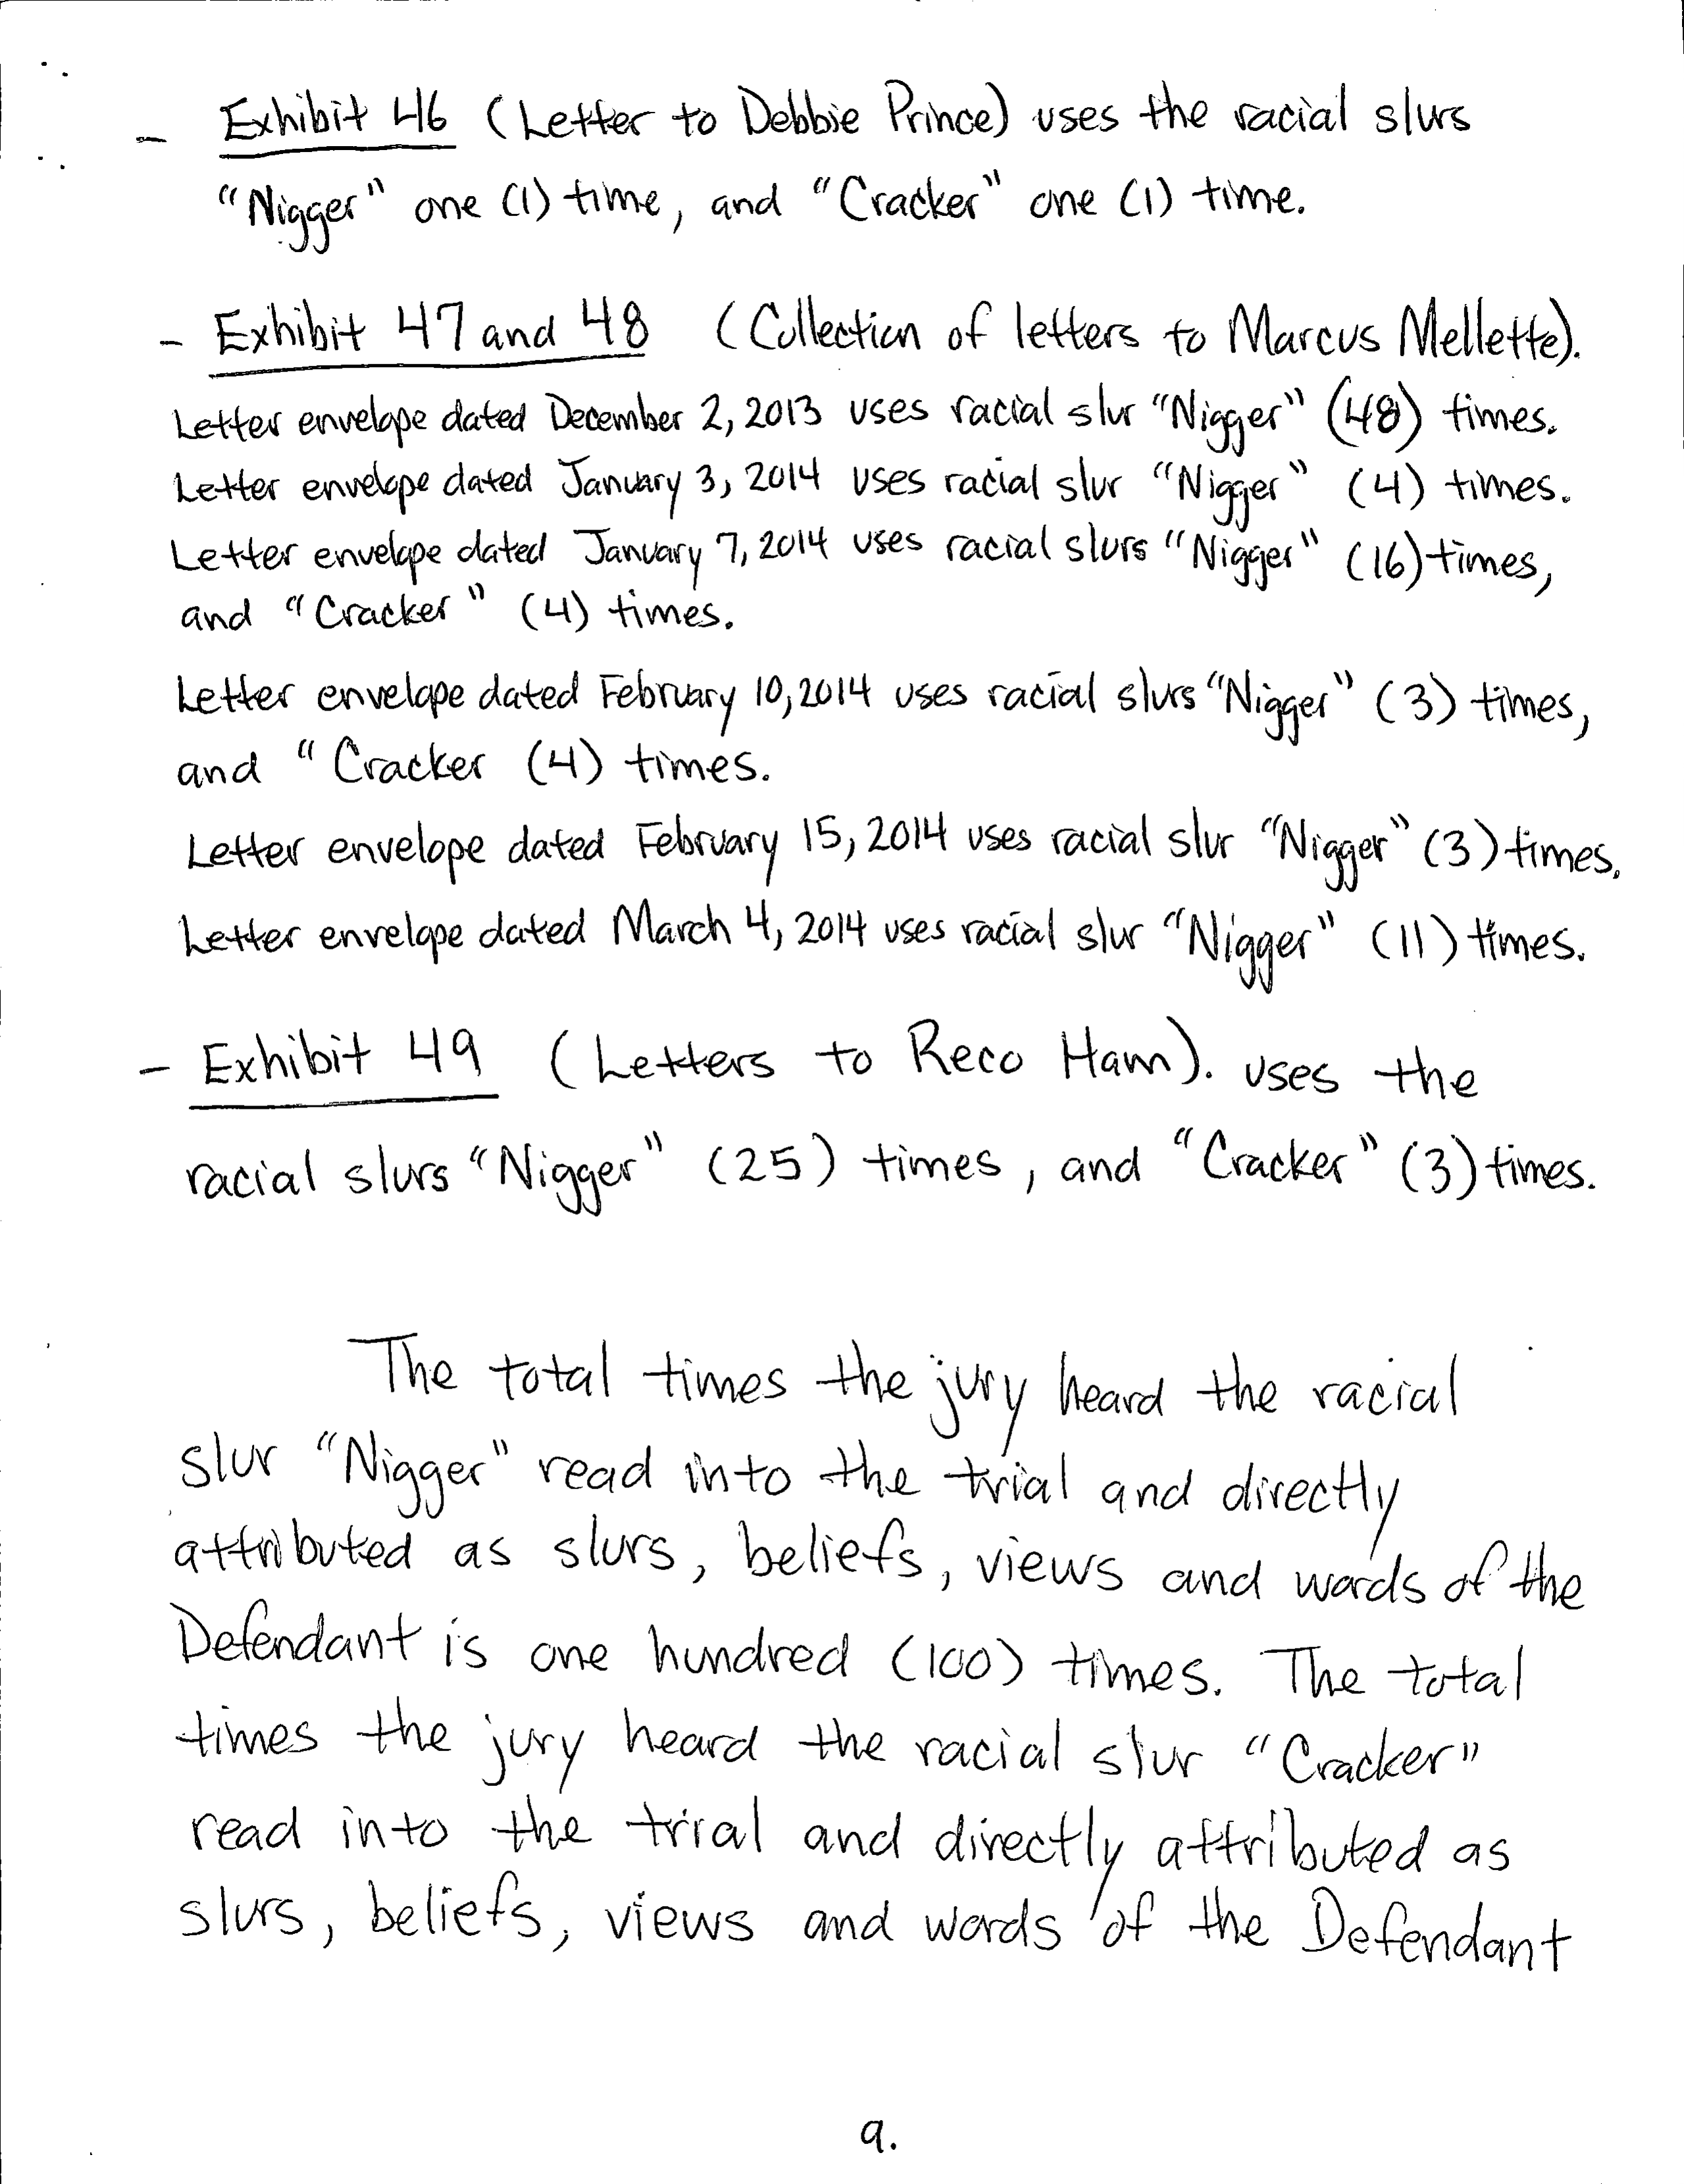 - Exhibit 46 (Letter to Debbie Prince) uses the racial slurs
"Nigger" one (1) time, and "Cracker" one (1) time.
- Exhibit 47 and 48 (Collection of letters to Marcus Mellette).
Letter envelope dated December 2, 2013 uses racial slur "Nigger" (48) times.
Letter envelope dated January 3, 2014 uses racial slur "Nigger" (4) times.
Letter envelope dated January 7, 2014 uses racial slurs "Nigger" (16) times,
and "Cracker" (4) times.
Letter envelope dated February 10, 2014 uses racial slurs "Nigger" (3) times,
and "Cracker (4) times.
Letter envelope dated February 15, 2014 uses racial slur "Nigger" (3) times.
Letter envelope dated March 4, 2014 uses racial slur "Nigger" (11) times.
- Exhibit 49 (Letters to Reco Ham). uses the
racial slurs "Nigger" (25) times, and "Cracker" (3) times.
The total times the jury heard the racial
slur "Nigger" read into the trial and directly
attributed as slurs, beliefs, views and words of the
Defendant is one hundred (100) times. The total
times the jury heard the racial slur "Cracker"
read into the trial and directly attributed as
slurs, beliefs, views and words of the Defendant
9.